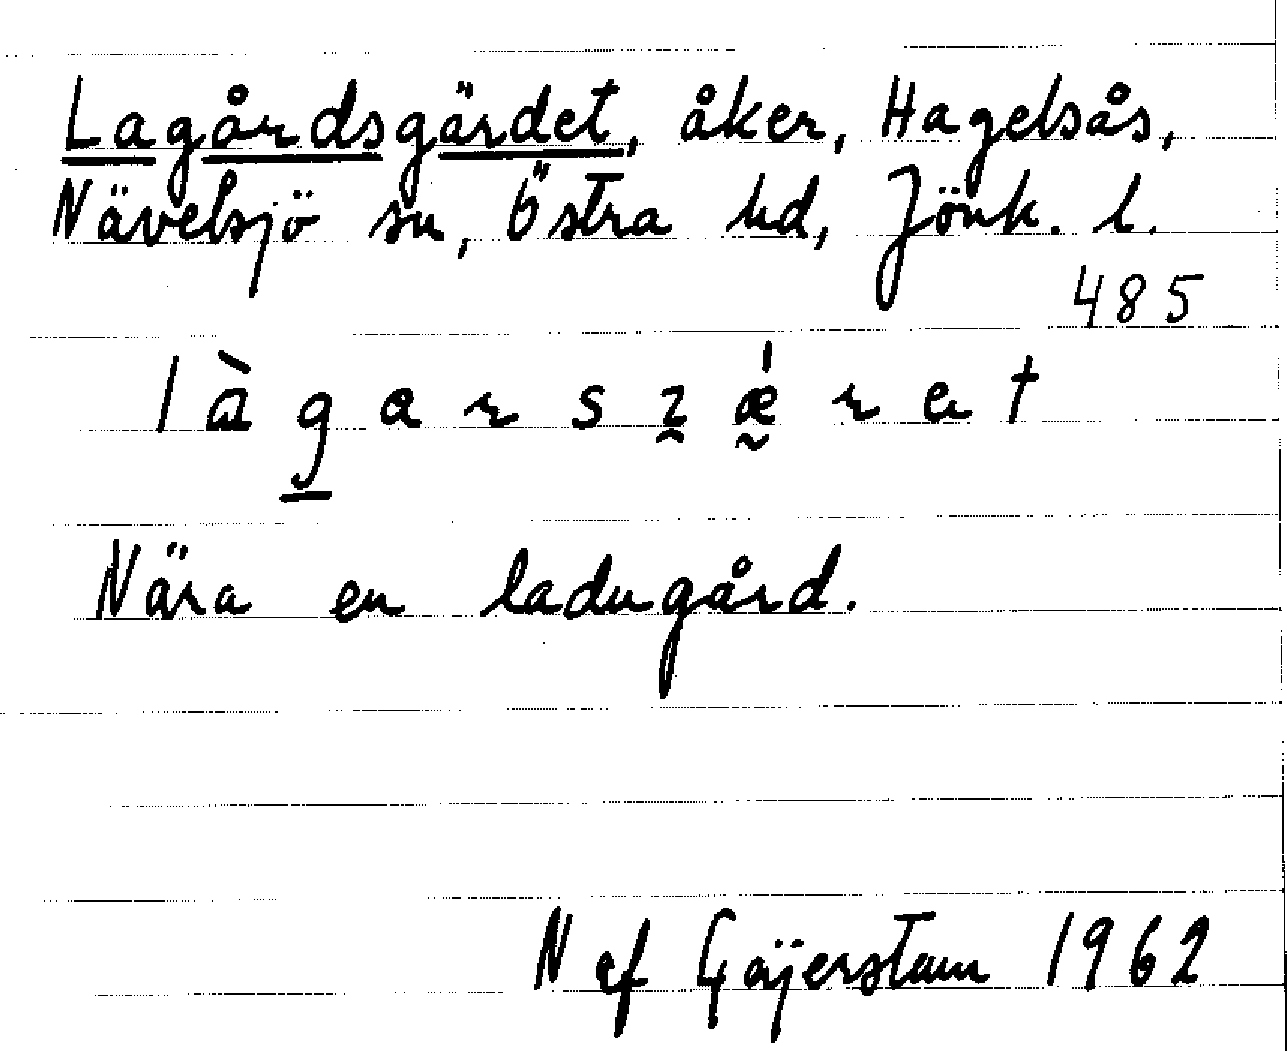 Lagårdsgärdet, åker, Hagelsås,
Nävelsjö sn, Östra hd, Jönk. l.
485
Nära en ladugård.
N af Gäijerstam 1962